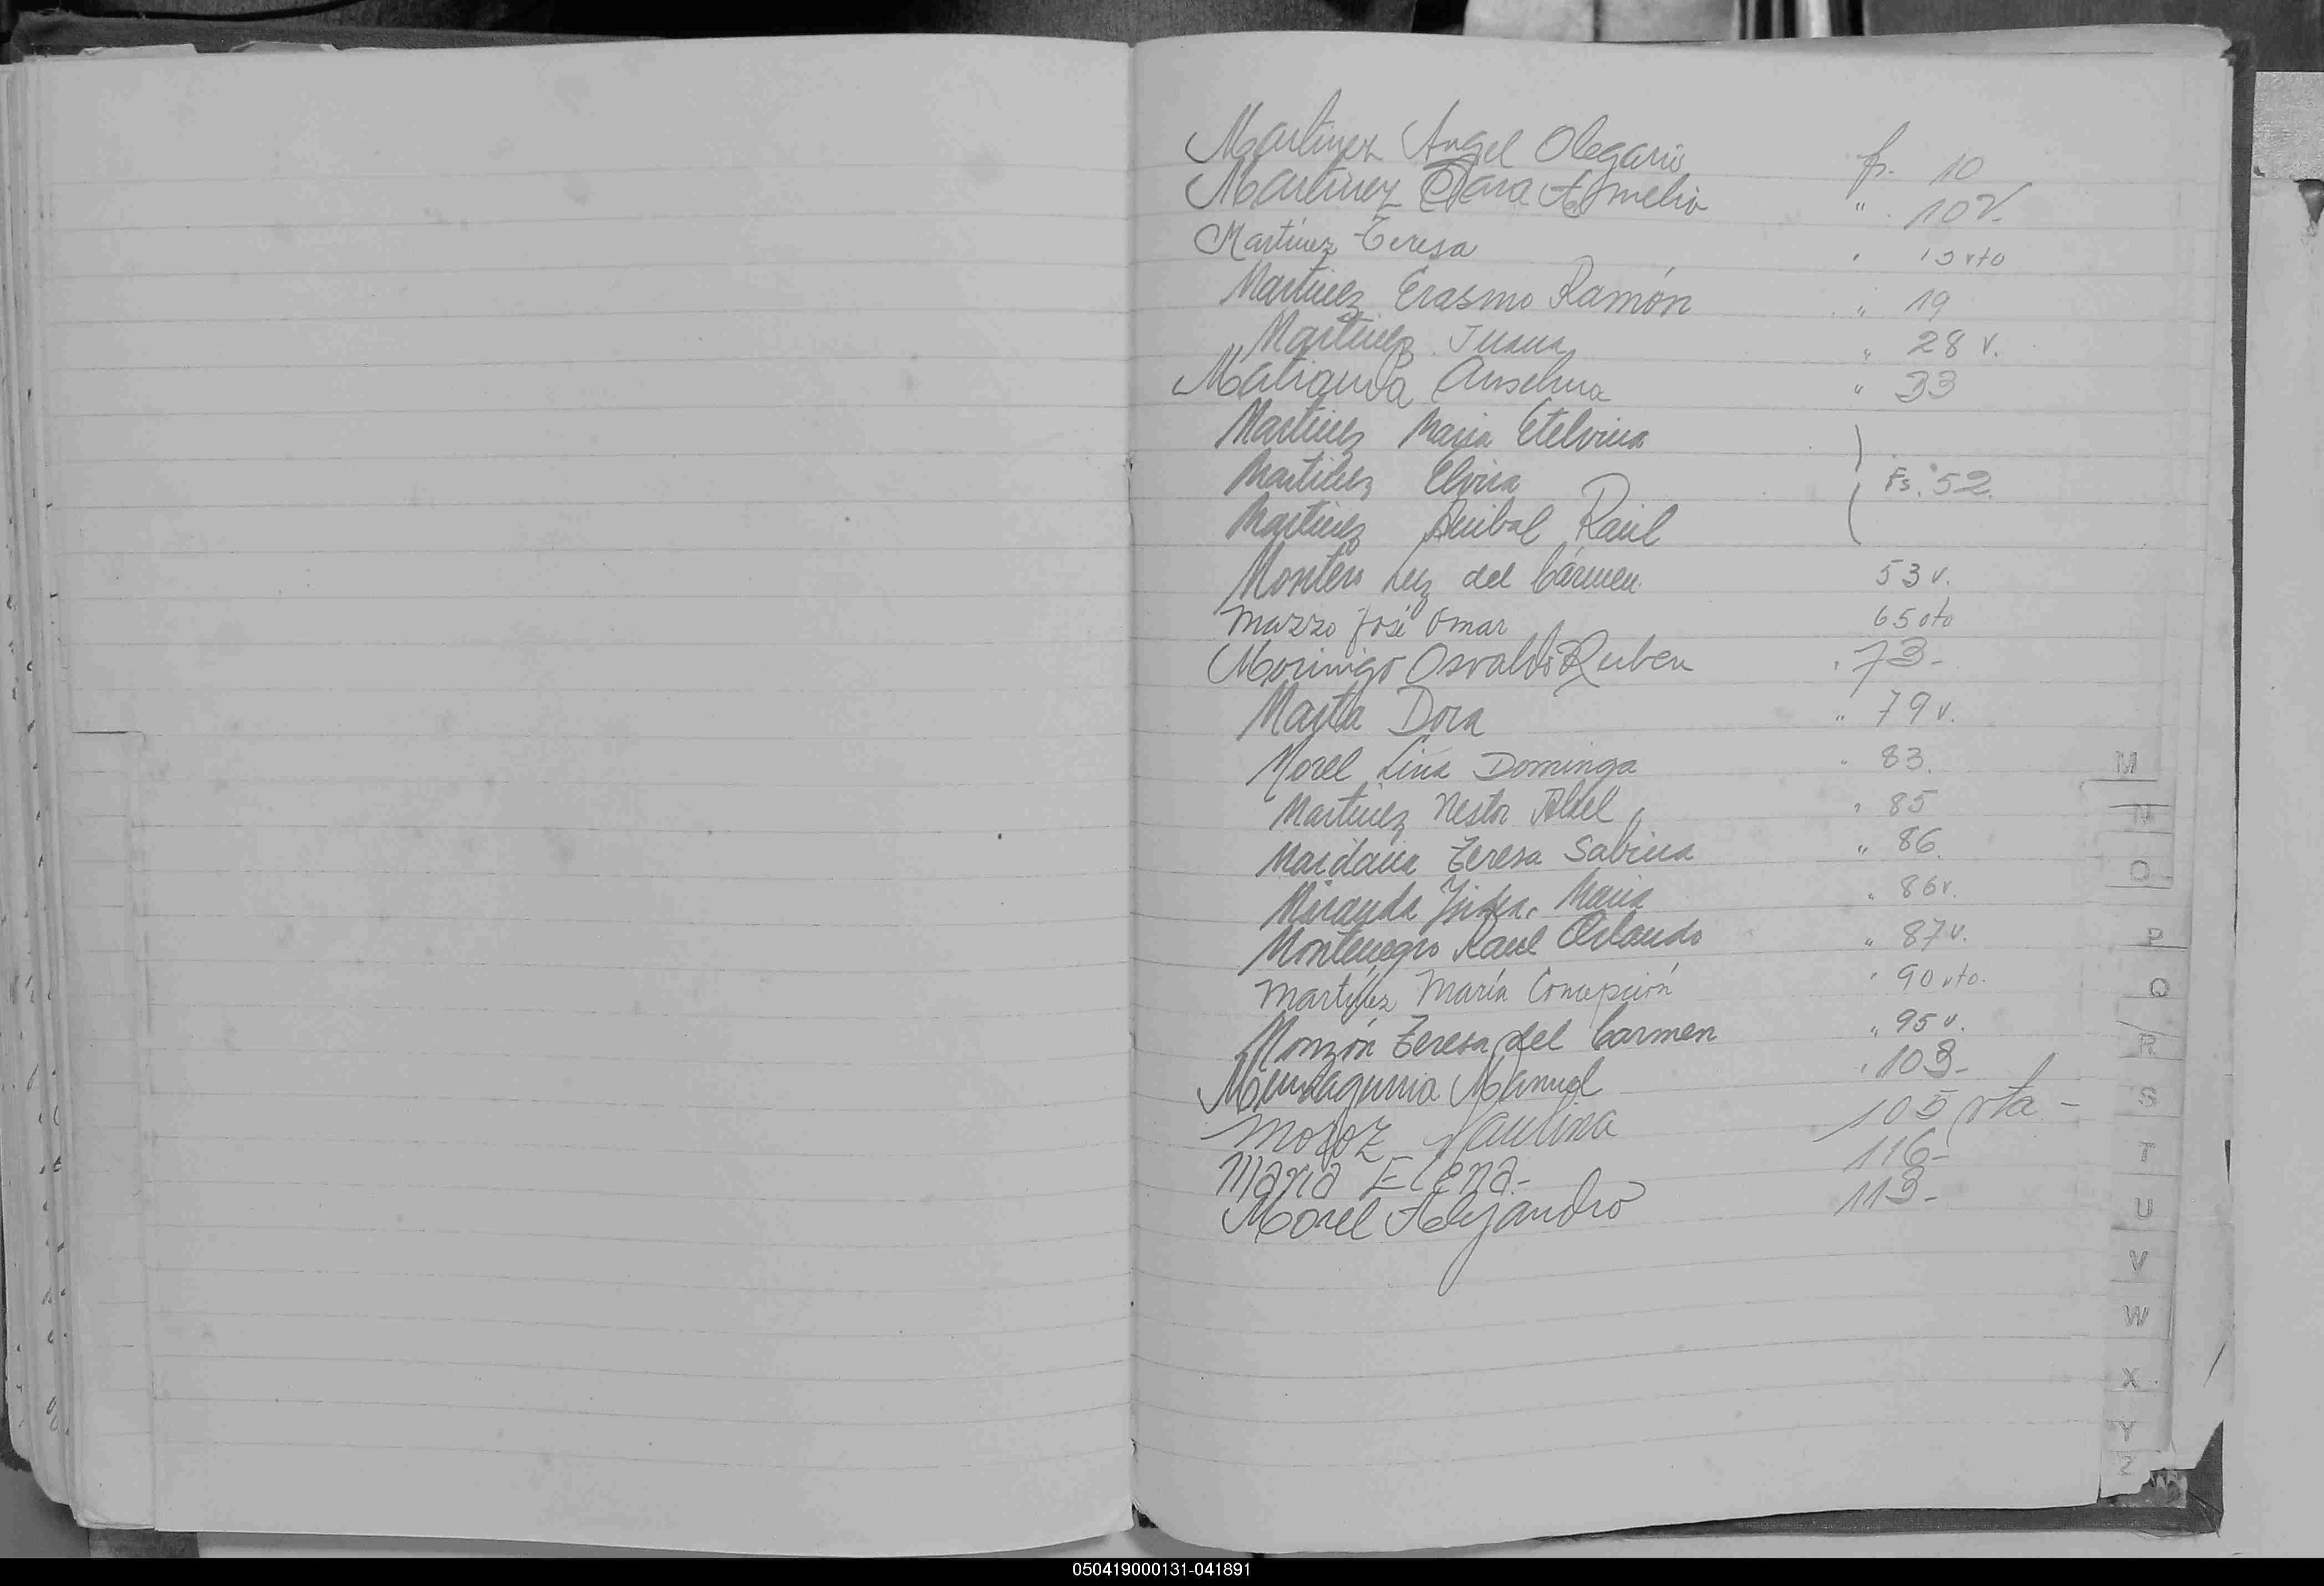 Martinez Angel Olegario fs. 10
Martinez Sara Amelia " 10 V.
Martinez Teresa " 15 vto
Martinez Erasmo Ramón " 19
Martinez Juana " 28 v.
Anselma " 33
Martinez Maria Etelvina
Martinez Elvira Fs. 52.
Martinez Anibal Raúl
Montero Luz del Cármen. 53 v.
Mazzo José Omar 65 vto
Morinigo Osvaldo Ruben " 73-
Marta Dora " 79 v.
Morel Lina Dominga " 83.
Martinez Nestor Abel " 85
Maidana Teresa Sabina " 86.
Miranda Maria " 86 v.
Montenegro Raul Orlando " 87 v.
Martínez María Concepción " 90 vto.
Monzón Teresa del Carmen " 95 v.
Manuel " 103-
Moroz Paulina 105 vta-
Maria Elena- 116-
Morel Alejandro 113-
M
N
O
P
Q
R
S
T
U
V
W
X
Y
Z
050419000131-041891